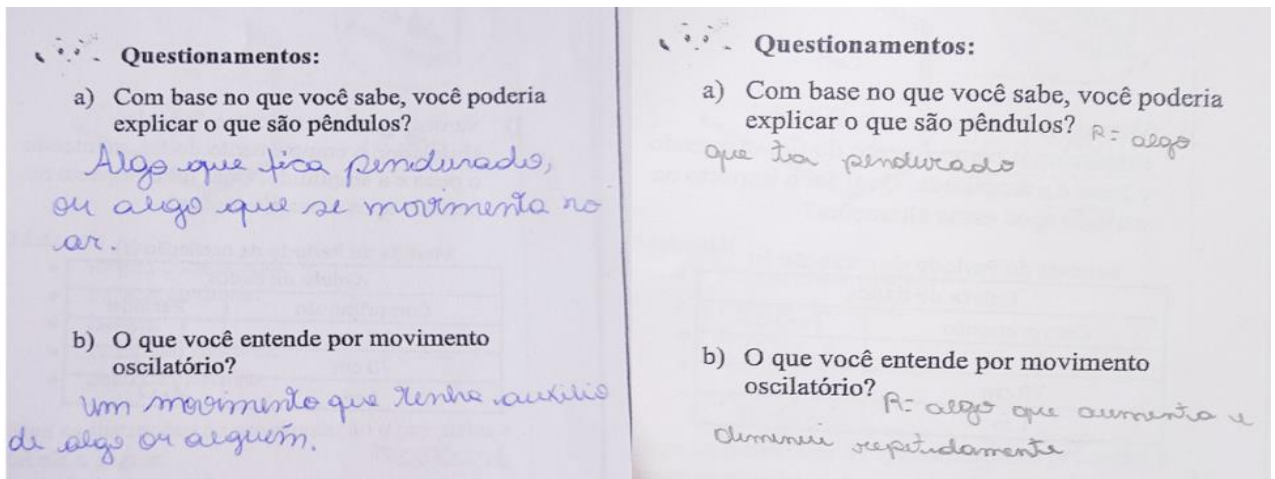 Questionamentos:
a) Com base no que você sabe, você poderia
explicar o que são pêndulos?
Algo que fica pendurado,
ou algo que se movimenta no
ar.
b) O que você entende por movimento
oscilatório?
Um movimento que tenha auxilio
de algo ou alguém.
Questionamentos:
a) Com base no que você sabe, você poderia
explicar o que são pêndulos? R= algo
que ta pendurado
b) O que você entende por movimento
oscilatório? R= algo que aumenta e
diminui repetidamente